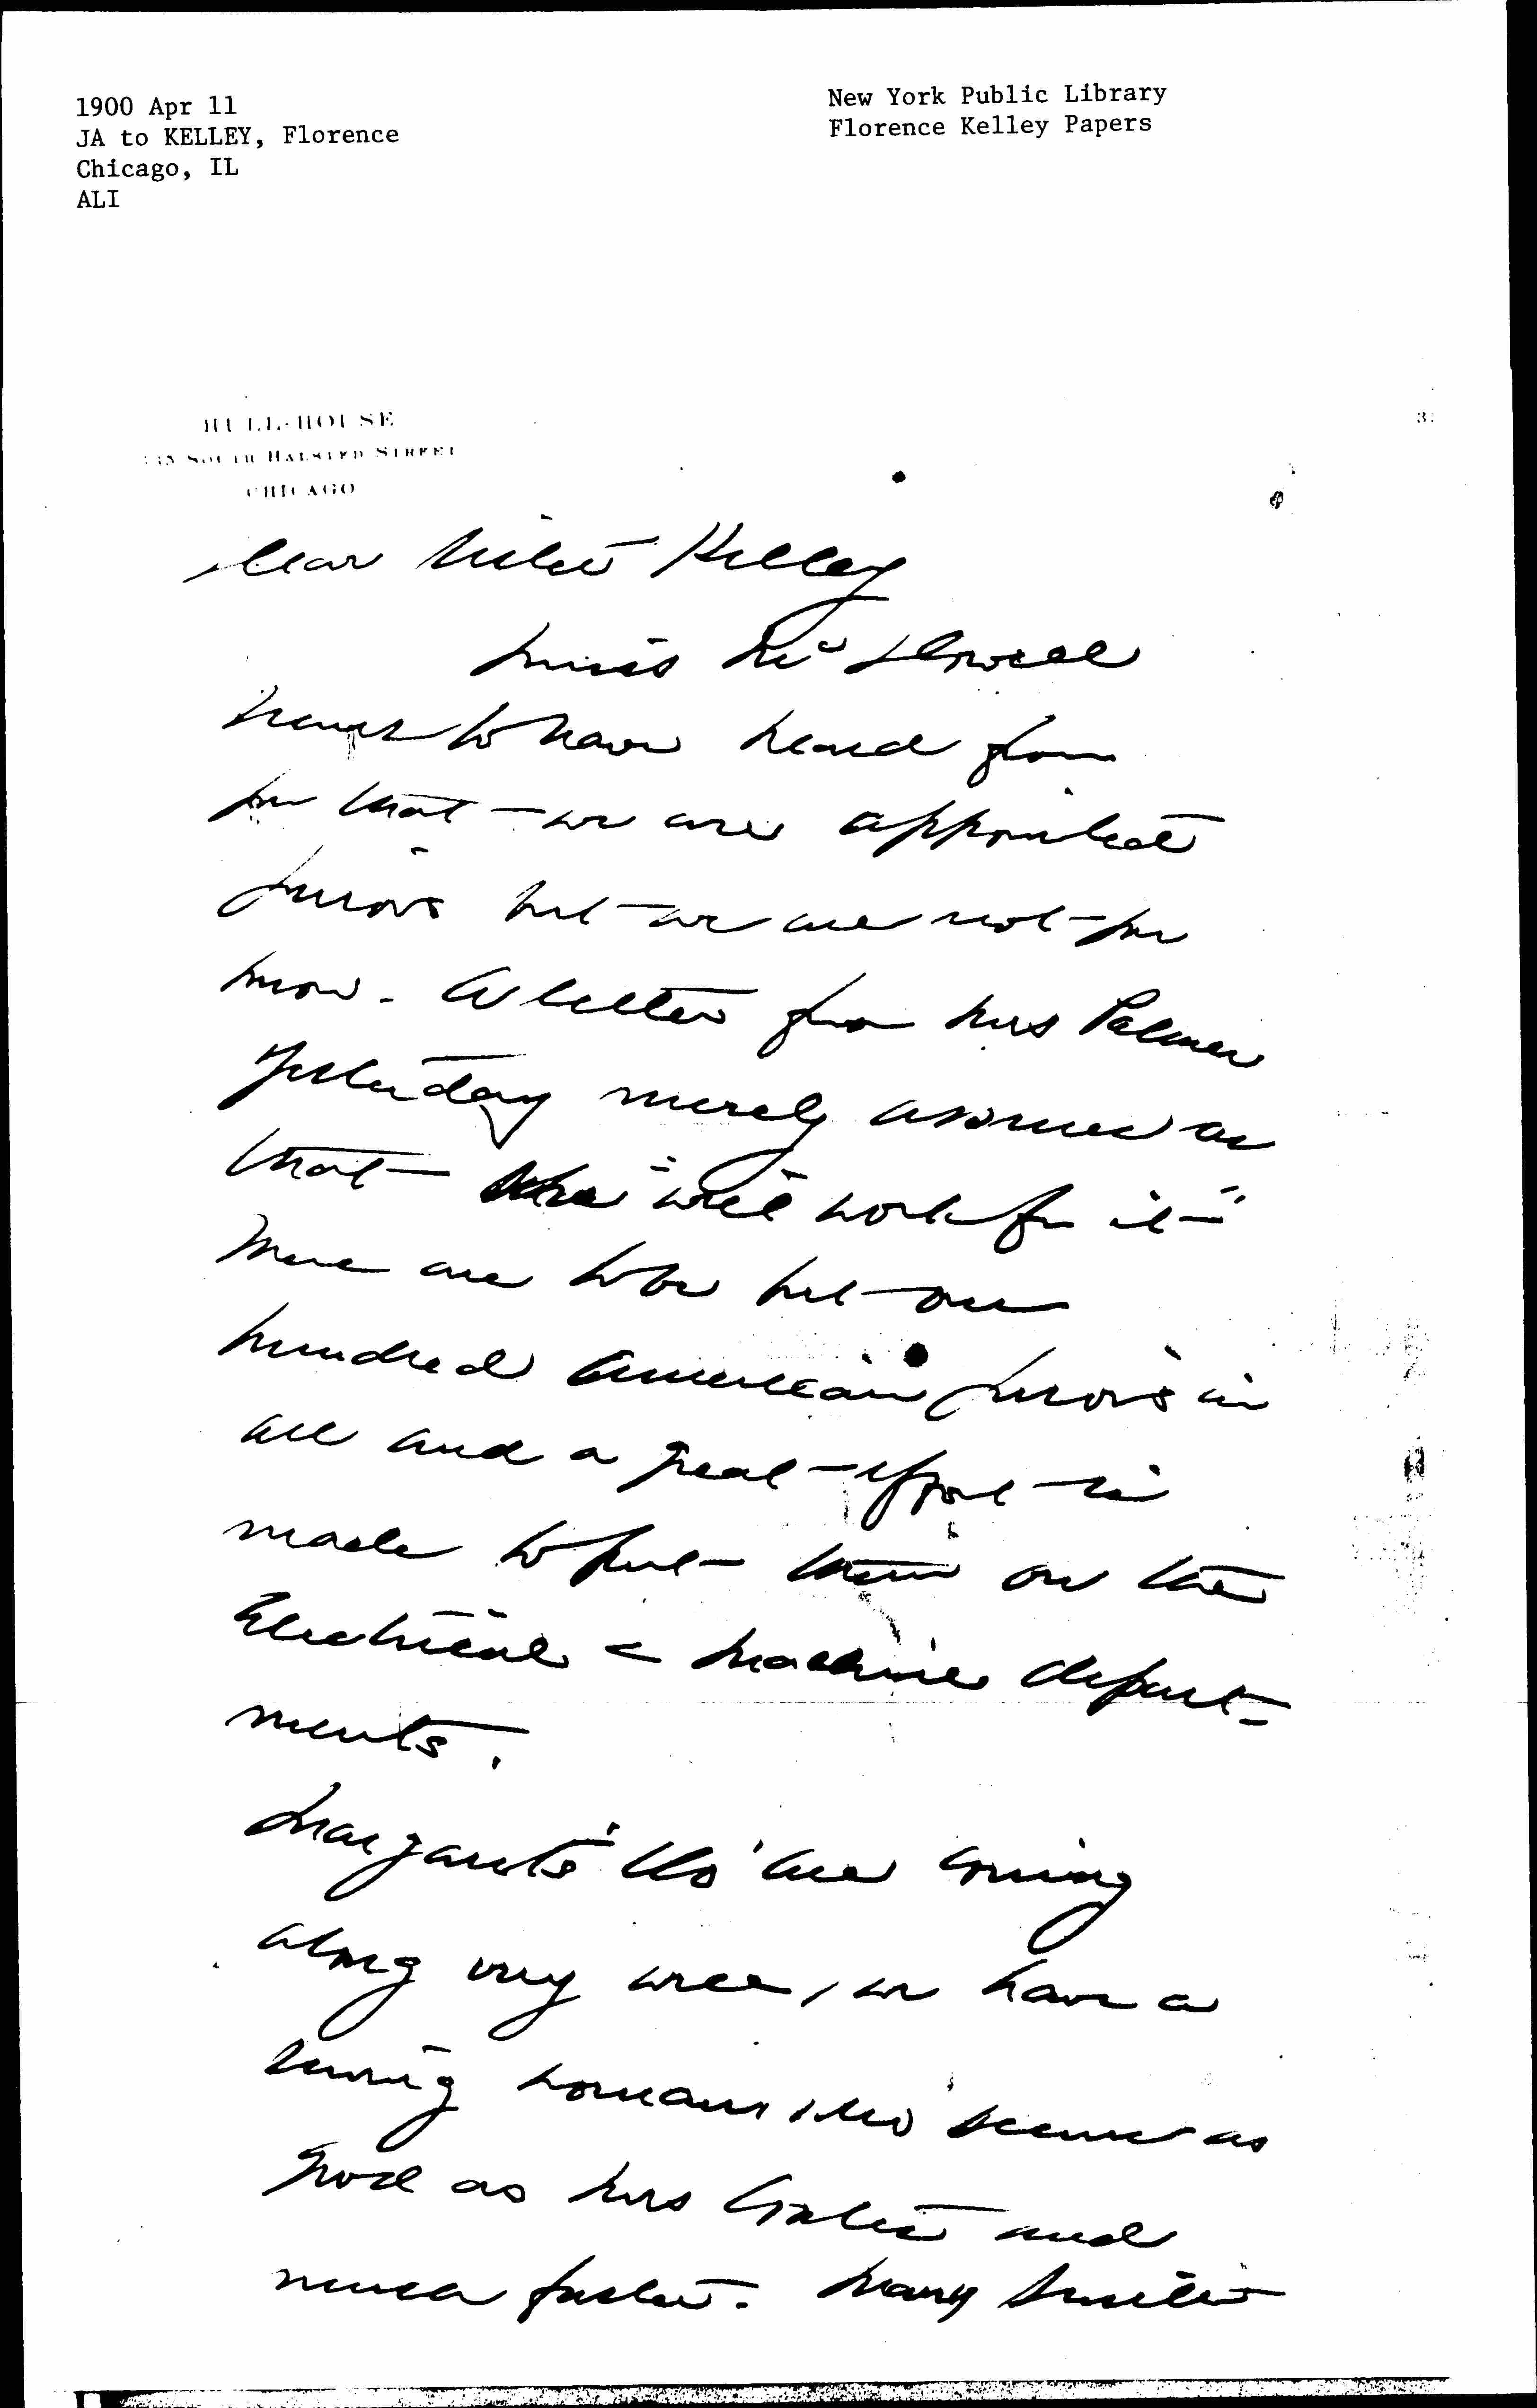 1900 Apr 11
JA to KELLEY, Florence
Chicago, IL
ALI
New York Public Library
Florence Kelley Papers
HULL-HOUSE
335 SOUTH HALSTED STREET
CHICAGO
Dear Sister Kelley
Miss McDowell
to have heard from
me that we are appointed
Jurors but we are not for
now. A letter from Mrs Palmer
yesterday merely assures us
that she "will work for it"
There are to be but one
hundred American Jurors in
all and a great effort is
made to put them on the
Electrical & machine depart-
ments.
Margaret's clo' are coming
along very well, we have a
sewing woman who seems as
good as Mrs and
much faster. Mary Smith